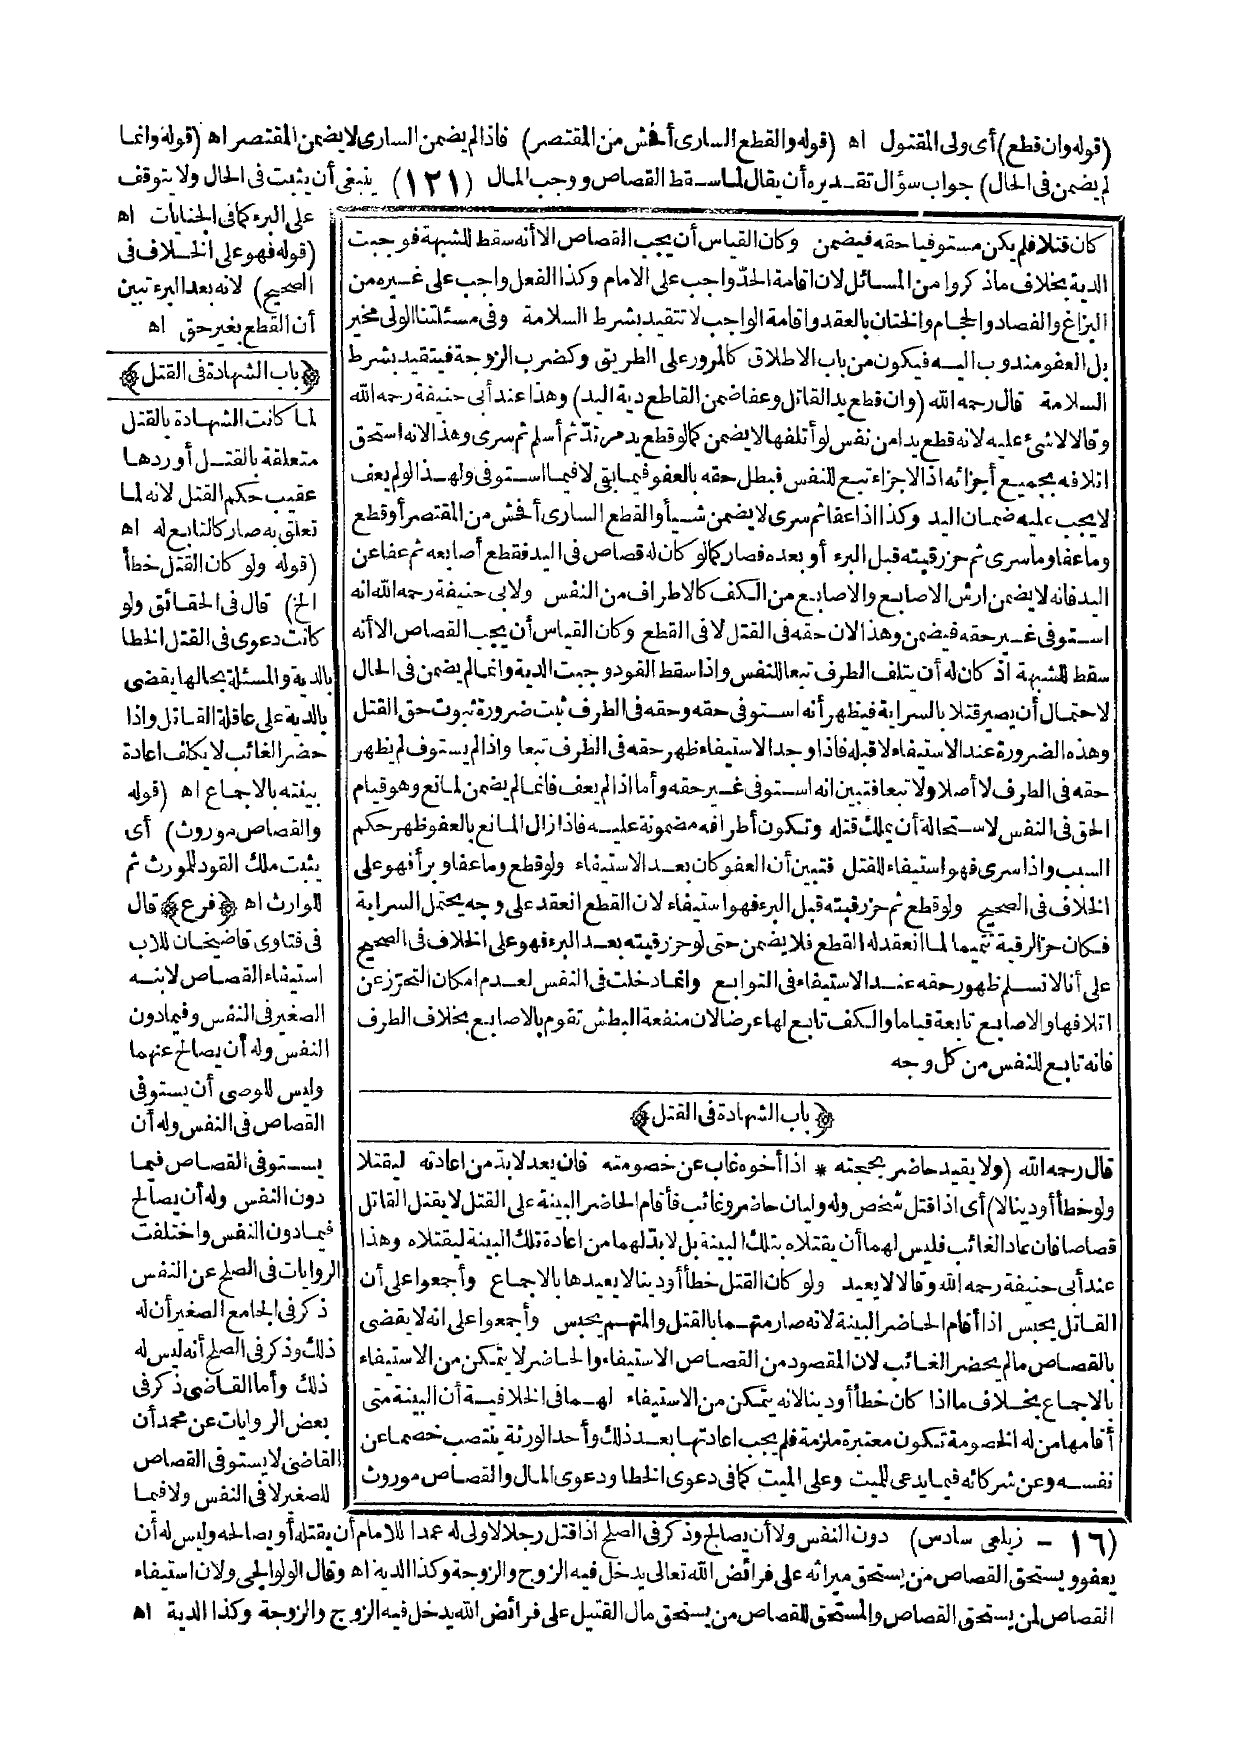 (قوله وان قطع) أى ولى المقتول اه (قوله والقطع السارى أفحش من المقتصر) فاذا لم يضمن السارى لا يضمن المقتصر اه (قوله وانما
لم يضمن فى الحال) جواب سؤال تقديره أن يقال لما سقط القصاص ووجب المال (١٢١) ينبغى أن يثبت فى الحال ولا يتوقف
على البرء كما فى الجنايات اه
(قوله فهو على الخلاف فى
الصحيح) لانه بعد البرء تبين
أن القطع بغير حق اه
﴿باب الشهادة فى القتل﴾
لما كانت الشهادة بالقتل
متعلقة بالقتل أوردها
عقيب حكم القتل لانه لما
تعلق به صار كالتابع له اه
(قوله ولو كان القتل خطأ
الخ) قال فى الحقائق ولو
كانت دعوى فى القتل الخطا
بالدية والمسئلة بحالها يقضى
بالدية على عاقلة القاتل واذا
حضر الغائب لا يكلف اعادة
بينته بالاجماع اه (قوله
والقصاص موروث) أى
يثبت ملك القود للمورث ثم
للوارث اه ﴿فرع﴾ قال
فى فتاوى قاضيخان للاب
استيفاء القصاص لابنه
الصغير فى النفس وفيما دون
النفس وله أن يصالح عنهما
وليس للوصى أن يستوفى
القصاص فى النفس وله أن
يستوفى القصاص فيما
دون النفس وله أن يصالح
فيما دون النفس واختلفت
الروايات فى الصلح عن النفس
ذكر فى الجامع الصغير أن له
ذلك وذكر فى الصلح أنه ليس له
ذلك وأما القاضى ذكر فى
بعض الروايات عن محمد أن
القاضى لا يستوفى القصاص
للصغير لا فى النفس ولا فيما
كان قتلا فلم يكن مستوفيا حقه فيضمن وكان القياس أن يجب القصاص الا أنه سقط للشبهة فوجبت
الدية بخلاف ما ذكروا من المسائل لان اقامة الحد واجب على الامام وكذا الفعل واجب على غيره من
البزاغ والفصاد والحجام والختان بالعقد واقامة الواجب لا تتقيد بشرط السلامة وفى مسئلتنا الولى مخير
بل العفو مندوب اليه فيكون من باب الاطلاق كالمرور على الطريق وكضرب الزوجة فيتقيد بشرط
السلامة قال رحمه الله (وان قطع يد القاتل وعفا ضمن القاطع دية اليد) وهذا عند أبى حنيفة رحمه الله
وقالا لا شئ عليه لانه قطع يدا من نفس لو أتلفها لا يضمن كما لو قطع يد مرتد ثم أسلم ثم سرى وهذا لانه استحق
اتلافه بجميع أجزائه اذ الاجزاء تبع للنفس فبطل حقه بالعفو فيما بقى لا فيما استوفى ولهذا لو لم يعف
لا يجب عليه ضمان اليد وكذا اذا عفا ثم سرى لا يضمن شيأ والقطع السارى أفحش من المقتصر أو قطع
وما عفا وما سرى ثم حز رقبته قبل البرء أو بعده فصار كما لو كان له قصاص فى اليد فقطع أصابعه ثم عفا عن
اليد فانه لا يضمن ارش الاصابع والاصابع من الكف كالاطراف من النفس ولابى حنيفة رحمه الله انه
استوفى غير حقه فيضمن وهذا لان حقه فى القتل لا فى القطع وكان القياس أن يجب القصاص الا أنه
سقط للشبهة اذ كان له أن يتلف الطرف تبعا للنفس واذا سقط القود وجبت الدية وانما لم يضمن فى الحال
لاحتمال أن يصير قتلا بالسراية فيظهر أنه استوفى حقه وحقه فى الطرف ثبت ضرورة ثبوت حق القتل
وهذه الضرورة عند الاستيفاء لا قبله فاذا وجد الاستيفاء ظهر حقه فى الطرف تبعا واذا لم يستوف لم يظهر
حقه فى الطرف لا أصلا ولا تبعا فتبين انه استوفى غير حقه وأما اذا لم يعف فانما لم يضمن لمانع وهو قيام
الحق فى النفس لاستحالة أن يملك قتله وتكون أطرافه مضمونة عليه فاذا زال المانع بالعفو ظهر حكم
السبب واذا سرى فهو استيفاء للقتل فتبين أن العفو كان بعد الاستيفاء ولو قطع وما عفا وبرأ فهو على
الخلاف فى الصحيح ولو قطع ثم حز رقبته قبل البرء فهو استيفاء لان القطع انعقد على وجه يحتمل السراية
فكان حز الرقبة تتميما لما انعقد له القطع فلا يضمن حتى لو حز رقبته بعد البرء فهو على الخلاف فى الصحيح
على أنا لا نسلم ظهور حقه عند الاستيفاء فى التوابع وانما دخلت فى النفس لعدم امكان التحرز عن
اتلافها والاصابع تابعة قياما والكف تابع لها عرضا لان منفعة البطش تقوم بالاصابع بخلاف الطرف
فانه تابع للنفس من كل وجه
﴿باب الشهادة فى القتل﴾
قال رحمه الله (ولا يقيد حاضر بحجته * اذا أخوه غاب عن خصومته فان يعد لا بد من اعادته ليقتلا
ولو خطأ أو دينا لا) أى اذا قتل شخص وله وليان حاضر وغائب فأقام الحاضر البينة على القتل لا يقتل القاتل
قصاصا فان عاد الغائب فليس لهما أن يقتلاه بتلك البينة بل لا بد لهما من اعادة تلك البينة ليقتلاه وهذا
عند أبى حنيفة رحمه الله وقالا لا يعيد ولو كان القتل خطأ أو دينا لا يعيدها بالاجماع وأجمعوا على أن
القاتل يحبس اذا أقام الحاضر البينة لانه صار متهما بالقتل والمتهم يحبس وأجمعوا على انه لا يقضى
بالقصاص ما لم يحضر الغائب لان المقصود من القصاص الاستيفاء والحاضر لا يتمكن من الاستيفاء
بالاجماع بخلاف ما اذا كان خطأ أو دينا لانه يتمكن من الاستيفاء لهما فى الخلافية أن البينة متى
أقامها من له الخصومة تكون معتبرة ملزمة فلم يجب اعادتها بعد ذلك وأحد الورثة ينتصب خصما عن
نفسه وعن شركائه فيما يدعى للميت وعلى الميت كما فى دعوى الخطا ودعوى المال والقصاص موروث
(١٦ - زيلعى سادس) دون النفس ولا أن يصالح وذكر فى الصلح اذا قتل رجلا لا ولى له عمدا للامام أن يقتله أو يصالحه وليس له أن
يعفو ويستحق القصاص من يستحق ميراثه على فرائض الله تعالى يدخل فيه الزوج والزوجة وكذا الدية اه وقال الولوالجى ولان استيفاء
القصاص لمن يستحق القصاص والمستحق للقصاص من يستحق مال القتيل على فرائض الله يدخل فيه الزوج والزوجة وكذا الدية اه